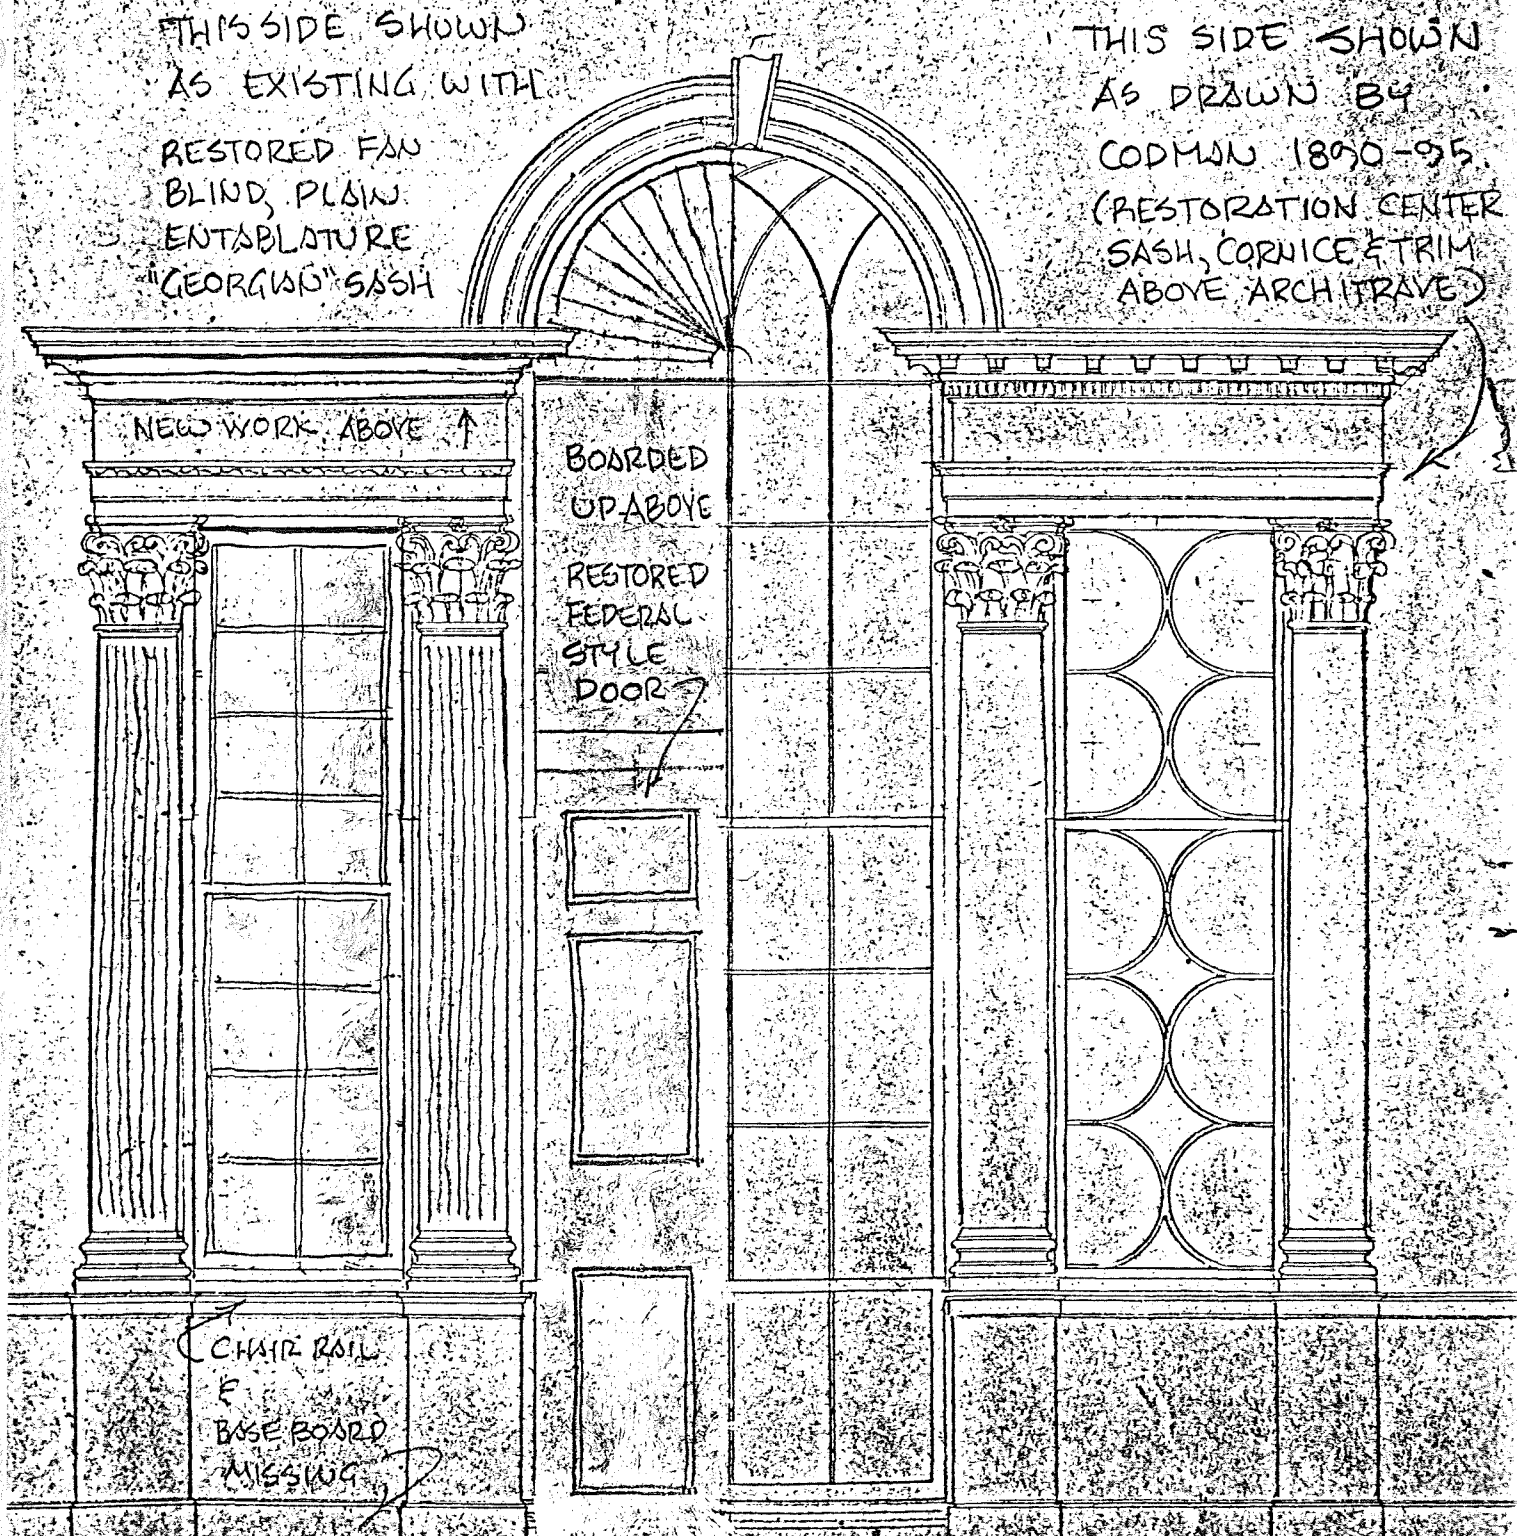 THIS SIDE SHOWN
AS EXISTING WITH
RESTORED FAN
BLIND, PLAIN
ENTABLATURE
"GEORGIAN" SASH
THIS SIDE SHOWN
AS DRAWN BY
CODMAN 1890-95
(RESTORATION CENTER
SASH, CORNICE & TRIM
ABOVE ARCHITRAVE)
NEW WORK ABOVE
BOARDED
UP ABOVE
RESTORED
FEDERAL
STYLE
DOOR
CHAIR RAIL
&
BASE BOARD
MISSING